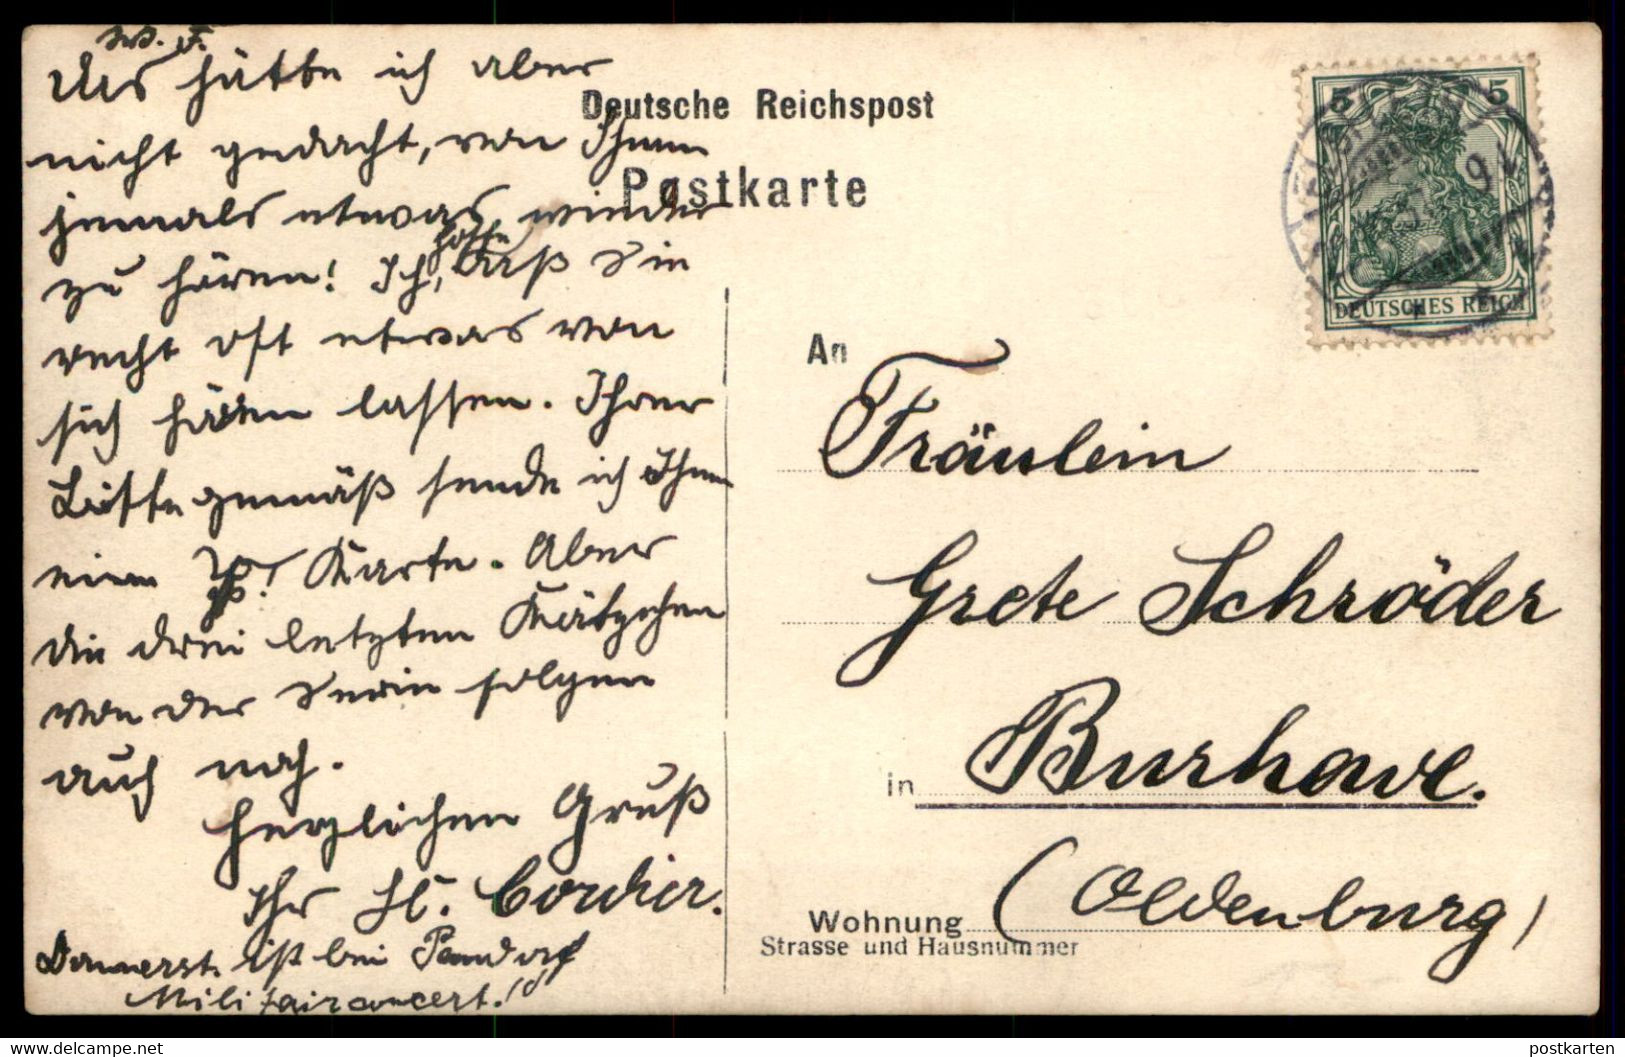 W. F.
Das hätte ich aber
nicht gedacht, von Ihnen
jemals etwas wieder
zu hören! Ich hoffe, daß Sie
recht oft etwas von
sich hören lassen. Ihrer
Bitte gemäß sende ich Ihnen
eine Karte. Aber
die drei letzten Kätzchen
von der Serie folgen
auch noch.
Herzlichen Gruß
Ihr H. Cordier.
Donnerst. ist bei
Militairconcert!
Deutsche Reichspost
Postkarte
5 5
DEUTSCHES REICH
An
Fräulein
Grete Schröder
in Burhave.
(Oldenburg)
Wohnung
Strasse und Hausnummer
www.delcampe.net
postkarten